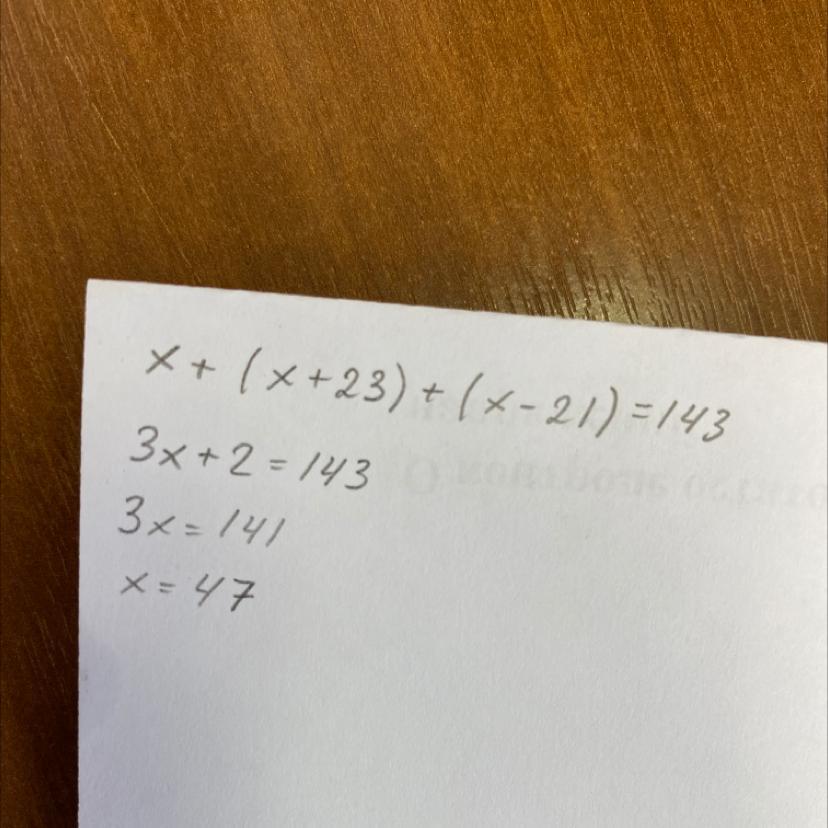 x + (x+23) + (x-21) = 143
3x + 2 = 143
3x = 141
x = 47